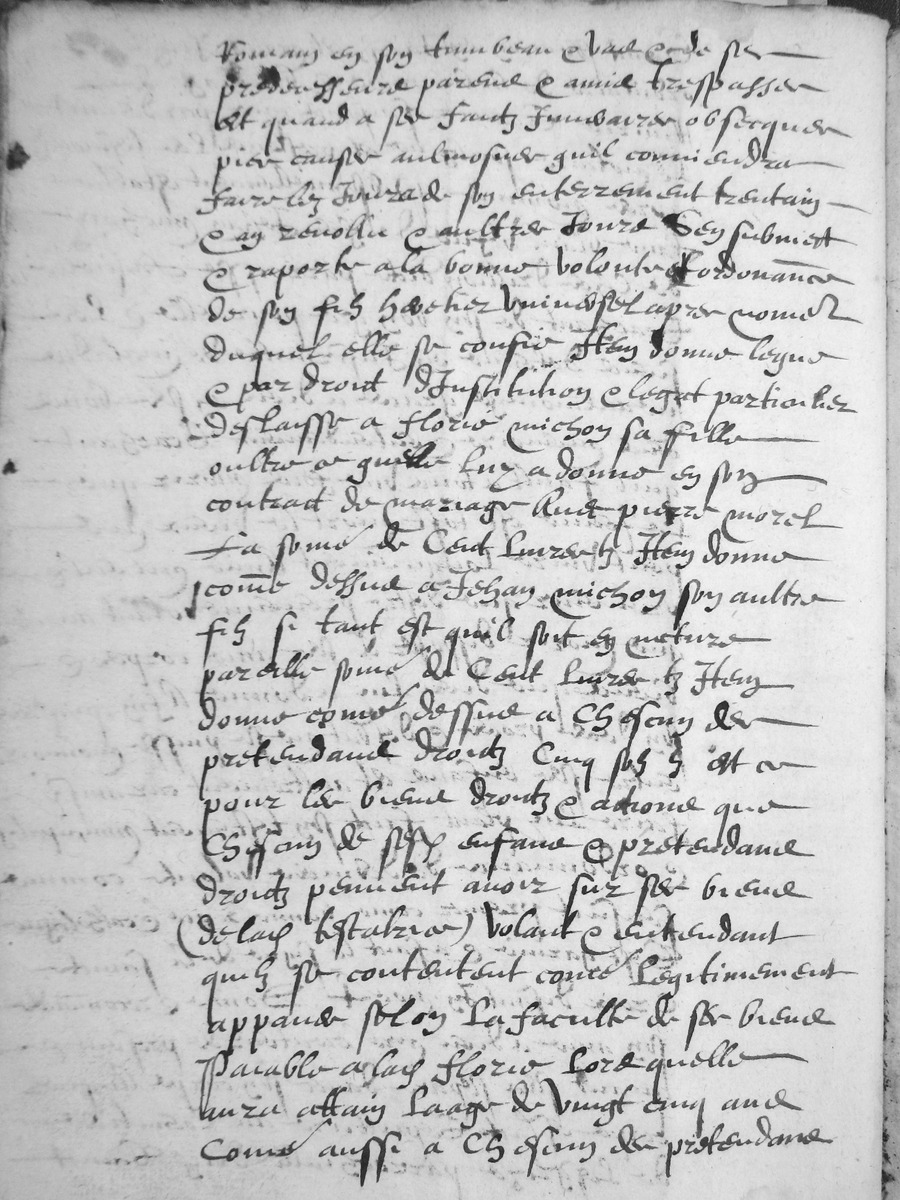 Romain en son tumbeau & vas & de ses
predecesseurs parens & amis trespasses
Et quand a ses obsecques
pies causes aulmosnes quil conviendra
faire les Jours de son enterrement trentain
& an revollu & aultres Jours Sen submect
& raporte a la bonne volonte et ordonance
de son filz heretier universel apres nome
duquel elle se confie Item donne legue
& par droict dInstitution & legat particulier
deslaisse a florie michon sa fille
oultre ce quelle luy a donne en son
contract de mariage Avec pierre morel
La some de Cent livres tz Item donne
come dessus a Jehan michon son aultre
filz si tant est quil soit en nature
pareille some de Cent livres tz Item
donne come dessus a Chescun des
pretendans droictz Cinq solz tz Et ce
pour les biens droictz & actions que
Chescun de sesd enfans & pretendans
droictz peuvent avoir sur ses biens
(de lad testatrice) volant & entendant
quilz se contentent come legitimement
appanes selon la faculte de ses biens
Paiable a lad florie lors quelle
aura attain laage de vingt cinq ans
Come aussi a Chescun des pretendans